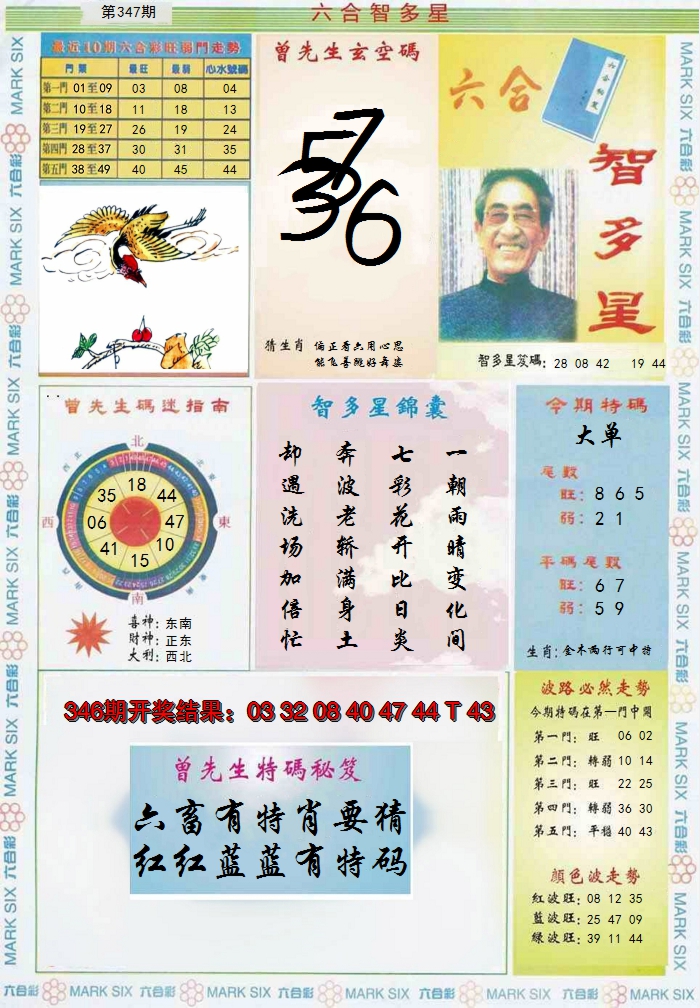 第347期
六合智多星
最近10期六合彩旺弱門走勢
門類 最旺 最弱 心水號碼
第一門 01至09 03 08 04
第二門 10至18 11 18 13
第三門 19至27 26 19 24
第四門 28至37 30 31 35
第五門 38至49 40 45 44
曾先生玄空碼
57
36
猜生肖 偏正看六用心思
能飞善跳好舞姿
六合
智多星
智多星笈碼: 28 08 42 19 44
曾先生碼迷指南
北
西北 東北
18
35 44
西 06 47 東
41 10
15
南
喜神: 东南
財神: 正东
大利: 西北
智多星錦囊
一朝雨晴变化间
七彩花开比日炎
奔波老轿满身土
却遇洗场加倍忙
今期特碼
大单
尾數
旺: 8 6 5
弱: 2 1
平碼尾數
旺: 6 7
弱: 5 9
生肖: 金木两行可中特
346期开奖结果：03 32 08 40 47 44 T 43
曾先生特碼秘笈
六畜有特肖要猜
红红蓝蓝有特码
波路必然走勢
今期特碼在第一門中開
第一門: 旺 06 02
第二門: 轉弱 10 14
第三門: 旺 22 25
第四門: 轉弱 36 30
第五門: 平穩 40 43
顏色波走勢
紅波旺: 08 12 35
藍波旺: 25 47 09
綠波旺: 39 11 44
MARK SIX 六合彩 MARK SIX 六合彩 MARK SIX 六合彩 MARK SIX 六合彩 MARK SIX